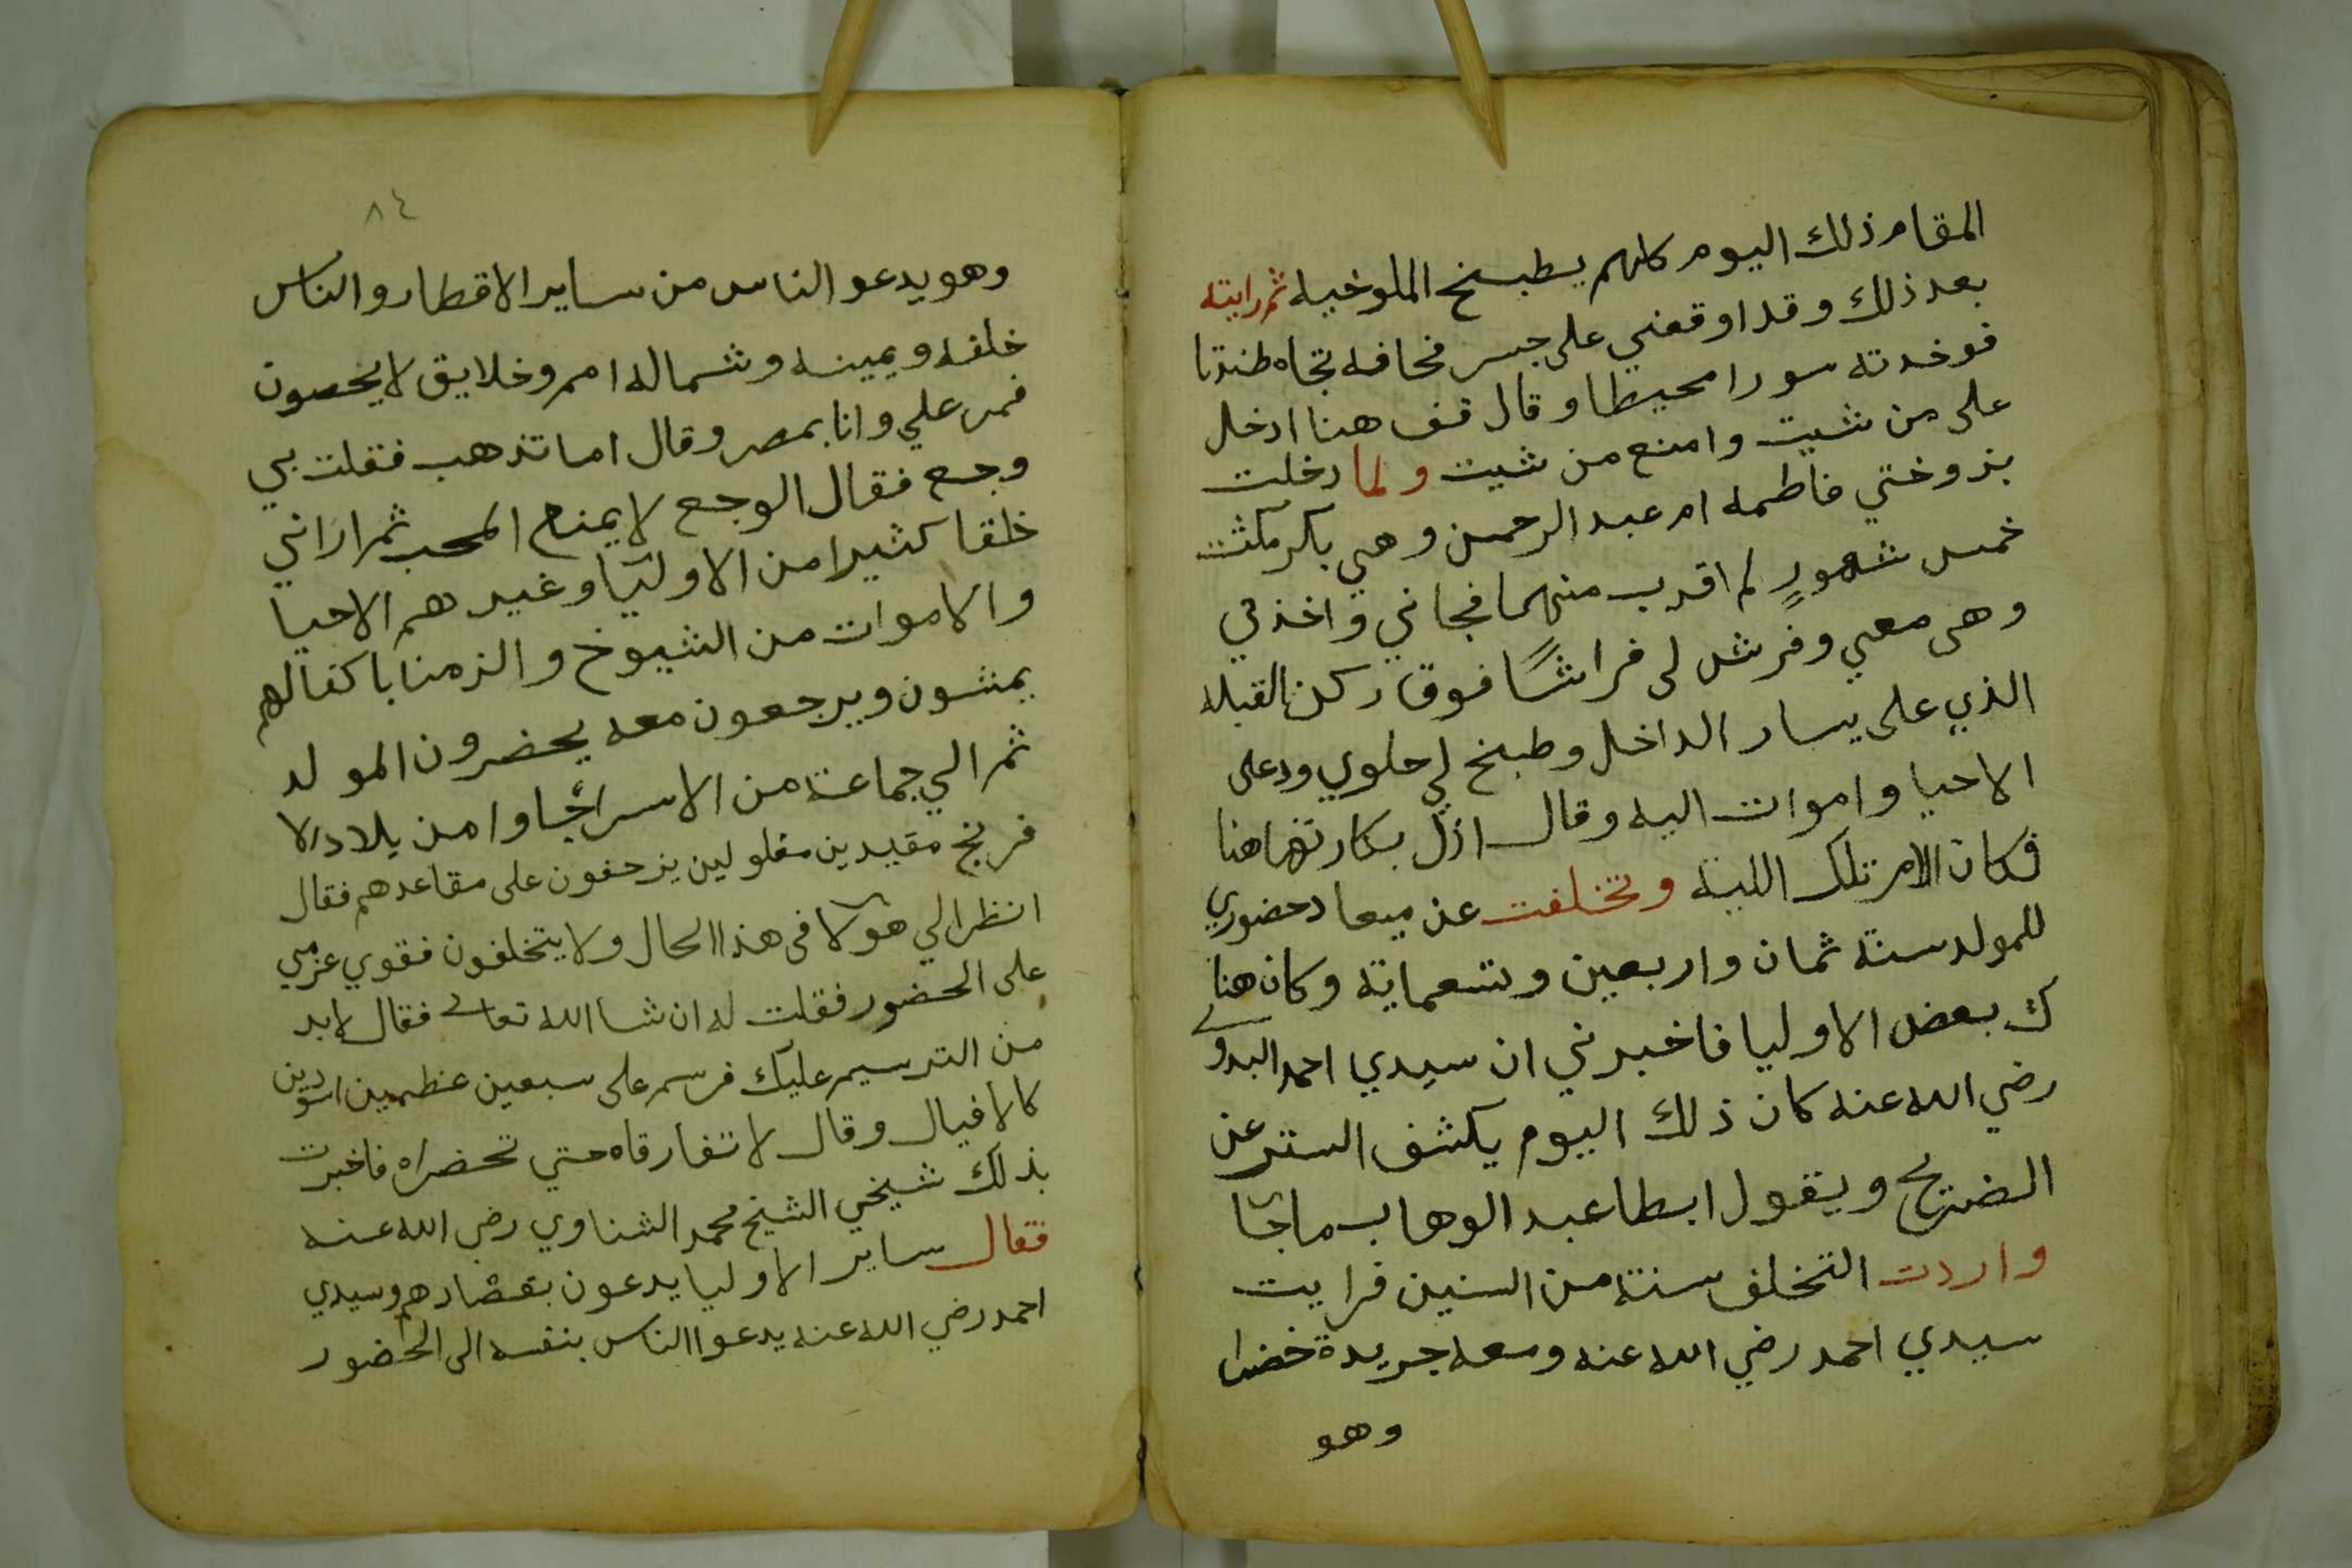 المقام ذلك اليوم كلهم يطبخ الملوخيه ثم رايته
بعد ذلك وقد اوقفني على جسر قحافه تجاه طندتا
فوخدته سورا محيطا وقال قف هنا ادخل
على من شيت وامنع من شيت ولما دخلت
بزوختي فاطمه ام عبد الرحمن وهي بكر مكثت
خمس شهور لم اقرب منها فجاني واخذني
وهى معي وفرش لى فراشًا فوق ركن القبله
الذي على يسار الداخل وطبخ لي حلوي ودعى
الاحيا واموات اليه وقال ازل بكارتها هنا
فكان الامر تلك الليله وتخلفت عن ميعاد حضوري
للمولد سنة ثمان واربعين وتسعماية وكان هنا
ك بعض الاوليا فاخبرني ان سيدي احمد البدوي
رضي الله عنه كان ذلك اليوم يكشف الستر عن
الضريح ويقول ابطا عبد الوهاب ماجآ
واردت التخلف سنة من السنين فرايت
سيدي احمد رضي الله عنه ومعه جريدة خضرا
وهو
٨٤
وهو يدعو الناس من ساير الاقطار والناس
خلفه ويمينه وشماله امم وخلايق لا يحصون
فمر علي وانا بمصر وقال اما تذهب فقلت بي
وجع فقال الوجع لا يمنع المحب ثم اراني
خلقا كثيرا من الاوليا وغيرهم الاحيا
والاموات من الشيوخ والزمنا باكفالهم
يمشون ويرجعون معه يحضرون المولد
ثم الي جماعة من الاسرا جاوا من بلاد الا
فرنج مقيدين مغلولين يزحفون على مقاعدهم فقال
انظر الي هولا فى هذا الحال ولا يتخلفون فقوي عزمي
على الحضور فقلت له ان شا الله تعالى فقال لابد
من الترسيم عليك فرسم على سبعين عظيمين اسودين
كالافيال وقال لا تفارقاه حتي تحضراه فاخبرت
بذلك شيخي الشيخ محمد الشناوي رضي الله عنه
فقال ساير الاوليا يدعون بقصادهم وسيدي
احمد رضي الله عنه يدعوا الناس بنفسه الى الحضور